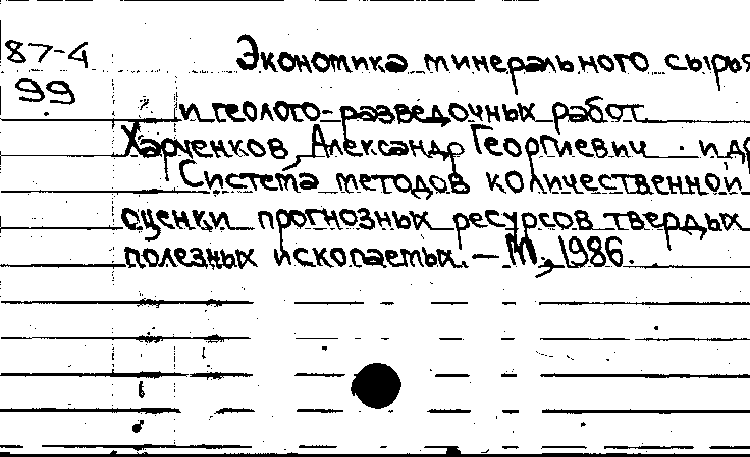 87-4 Экономика минерального сырья
99
и геолого-разведочных работ.
Харченков, Александр Георгиевич и др
Система методов количественной
оценки прогнозных ресурсов твердых
полезных ископаемых. — М., 1986.